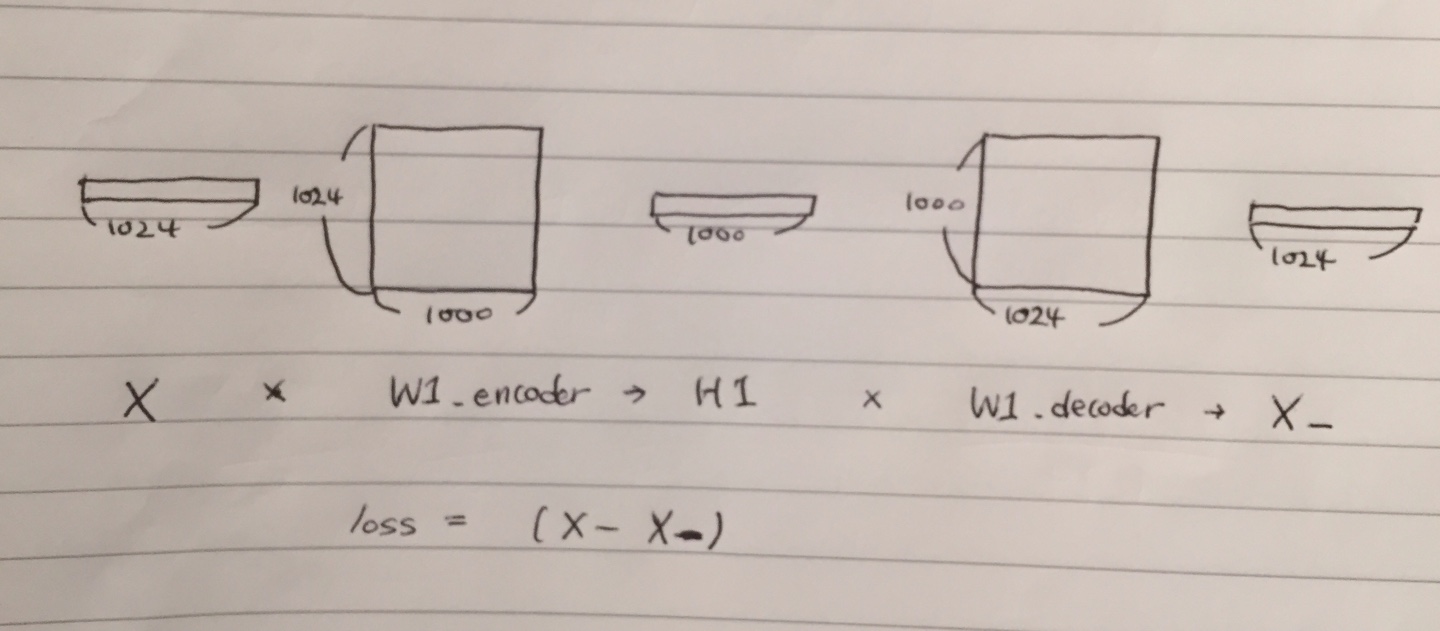 1024 1024 1000 1000 1000 1024 1024
X × W1_encoder → H1 × W1_decoder → X_
loss = (X - X_)